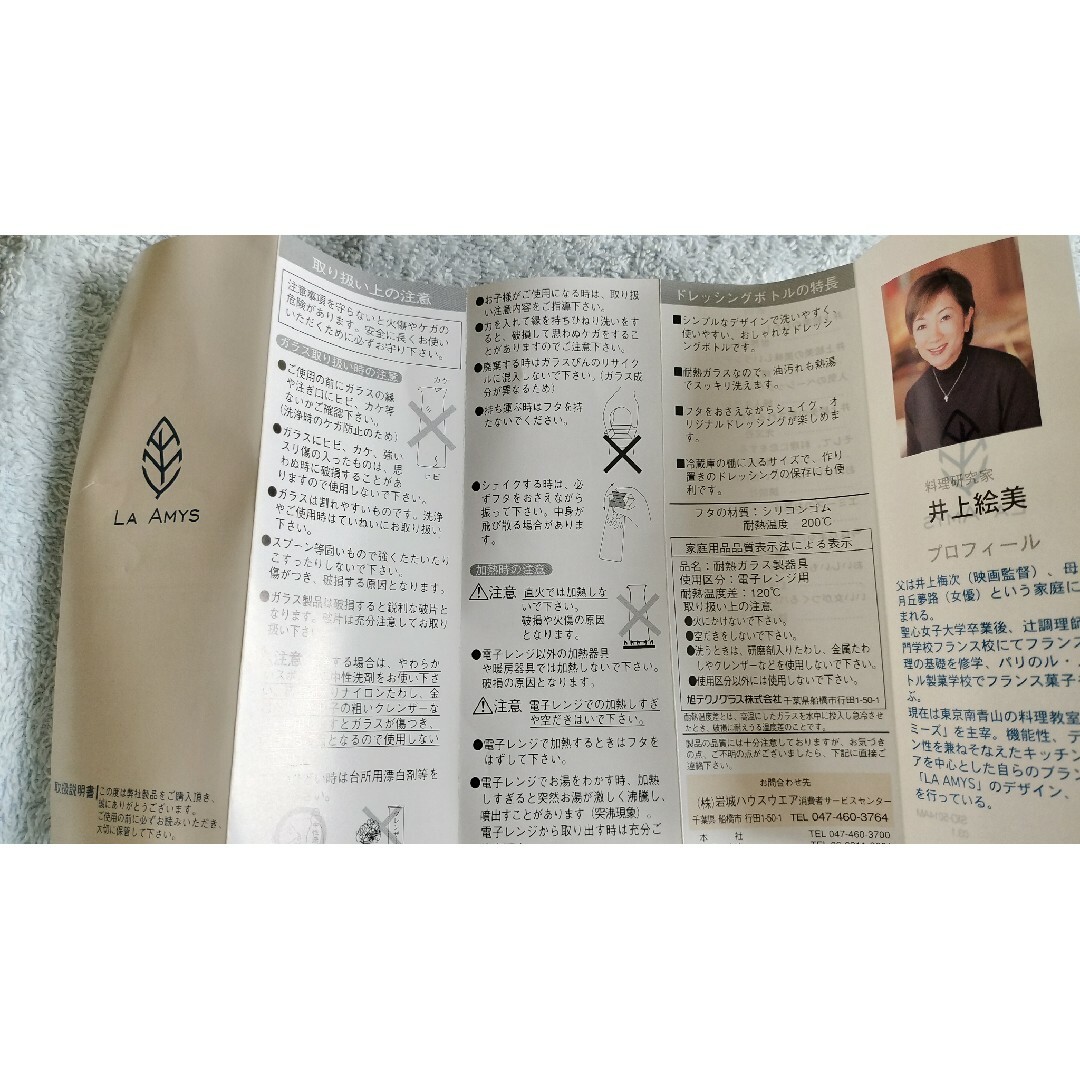 LA AMYS
取扱説明書
この度は弊社製品をご購入頂き、
誠にありがとうございます。
ご使用の前に必ずお読みいただき、
大切に保管して下さい。
取り扱い上の注意
注意事項を守らないと火傷やケガの
危険があります。安全に長くお使い
いただくために必ずお守り下さい。
ガラス取り扱い時の注意
●ご使用の前にガラスの縁
や注ぎ口にヒビ、カケ等
ないかご確認下さい。
(洗浄時のケガ防止のため)
カケ
ヒビ
●ガラスにヒビ、カケ、強い
スリ傷の入ったものは、思
わぬ時に破損することがあ
りますので使用しないで下さい。
●ガラスは割れやすいものです。洗浄
やご使用時はていねいにお取り扱い
下さい。
●スプーン等固いもので強くたたいたり
こすったりしないで下さい。
傷がつき、破損する原因となります。
●ガラス製品は破損すると鋭利な破片と
なります。破片は充分注意してお取り
扱い下さい
注意
する場合は、やわらか
中性洗剤をお使い下さ
ナイロンたわし、金
子の粗いクレンザーな
すとガラスが傷つき、
となるので使用しない
時は台所用漂白剤等を
●お子様がご使用になる時は、取り扱
い注意内容をご指導下さい。
●力を入れて縁を持ちひねり洗いをす
ると、破損して思わぬケガをするこ
とがありますのでご注意下さい。
●廃棄する時はガラスびんのリサイク
ルに混入しないで下さい。(ガラス成
分が異なるため)
●持ち運ぶ時はフタを持
たないでください。
●シェイクする時は、必
ずフタをおさえながら
振って下さい。中身が
飛び散る場合がありま
す。
加熱時の注意
⚠注意 直火では加熱しな
いで下さい。
破損や火傷の原因
となります。
●電子レンジ以外の加熱器具
や暖房器具では加熱しないで下さい。
破損の原因となります。
⚠注意 電子レンジでの加熱しすぎ
や空だきはいで下さい。
●電子レンジで加熱するときはフタを
はずして下さい。
●電子レンジでお湯をわかす時、加熱
しすぎると突然お湯が激しく沸騰し、
噴出すことがあります(突沸現象)。
電子レンジから取り出す時は充分ご
ドレッシングボトルの特長
■シンプルなデザインで洗いやすく
使いやすい、おしゃれなドレッシ
ングボトルです。
■耐熱ガラスなので、油汚れも熱湯
でスッキリ洗えます。
■フタをおさえながらシェイク、オ
リジナルドレッシングが楽しめま
す。
■冷蔵庫の棚に入るサイズで、作り
置きのドレッシングの保存にも便
利です。
フタの材質:シリコンゴム
耐熱温度 200℃
家庭用品品質表示法による表示
品名:耐熱ガラス製器具
使用区分:電子レンジ用
耐熱温度差:120℃
取り扱い上の注意
●火にかけないで下さい。
●空だきをしないで下さい。
●洗うときは、研磨剤入りたわし、金属たわ
しやクレンザーなどを使用しないで下さい。
●使用区分以外には使用しないで下さい。
旭テクノグラス株式会社 千葉県船橋市行田1-50-1
耐熱温度差とは、高温にしたガラスを水中に投入し急冷させ
たとき、破損に耐えうる温度差のことです。
製品の品質には十分注意しておりますが、お気づき
の点、ご不明の点がございましたら、下記に直接ご
連絡下さい。
お問合わせ先
(株)岩城ハウスウエア 消費者サービスセンター
千葉県 船橋市 行田1-50-1 TEL 047-460-3764
本 社 TEL 047-460-3700
料理研究家
井上絵美
プロフィール
父は井上梅次(映画監督)、母
月丘夢路(女優)という家庭に
まれる。
聖心女子大学卒業後、辻調理師
門学校フランス校にてフランス
理の基礎を修学、パリのル・
トル製菓学校でフランス菓子を
ぶ。
現在は東京南青山の料理教室
ミーズ」を主宰。機能性、デ
ン性を兼ねそなえたキッチン
アを中心とした自らのブラン
「LA AMYS」のデザイン、
を行っている。